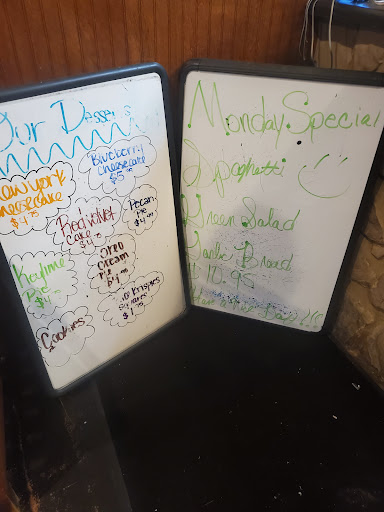 Our Desser
New York
Cheesecake
$4.75
Blueberry
Cheesecake
$5.
Red velvet
Cake
$4.
Pecan
Pie
$4.00
Keylime
Pie
$4.
Oreo
Cream
Pie
$4.00
Krispies
Squares
$1.
Cookies
Monday Special
Spaghetti
Green Salad
Garlic Bread
$10.95
Have a Nice Day!!